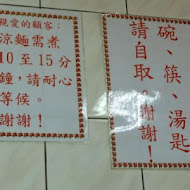 親愛的顧客：
涼麵需煮
10至15分
鐘，請耐心
等候。
謝謝！
碗、筷、湯匙
請自取。謝謝！